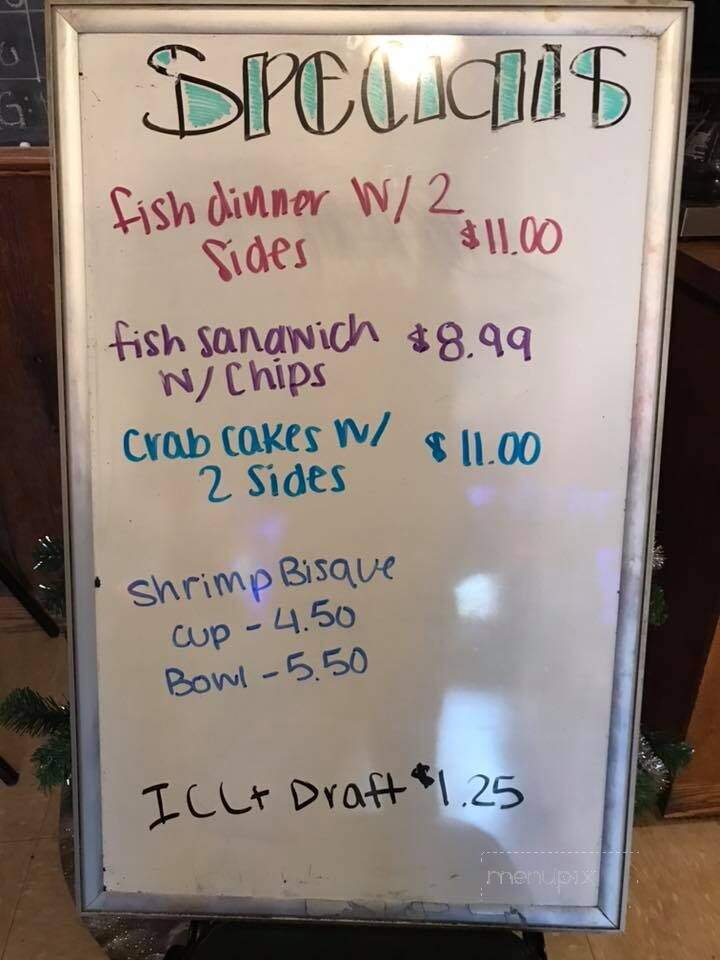 Specials
fish dinner w/ 2
Sides $11.00
fish sandwich $8.99
w/ Chips
Crab Cakes w/ $11.00
2 Sides
Shrimp Bisque
Cup - 4.50
Bowl - 5.50
ICLt Draft $1.25
menupix